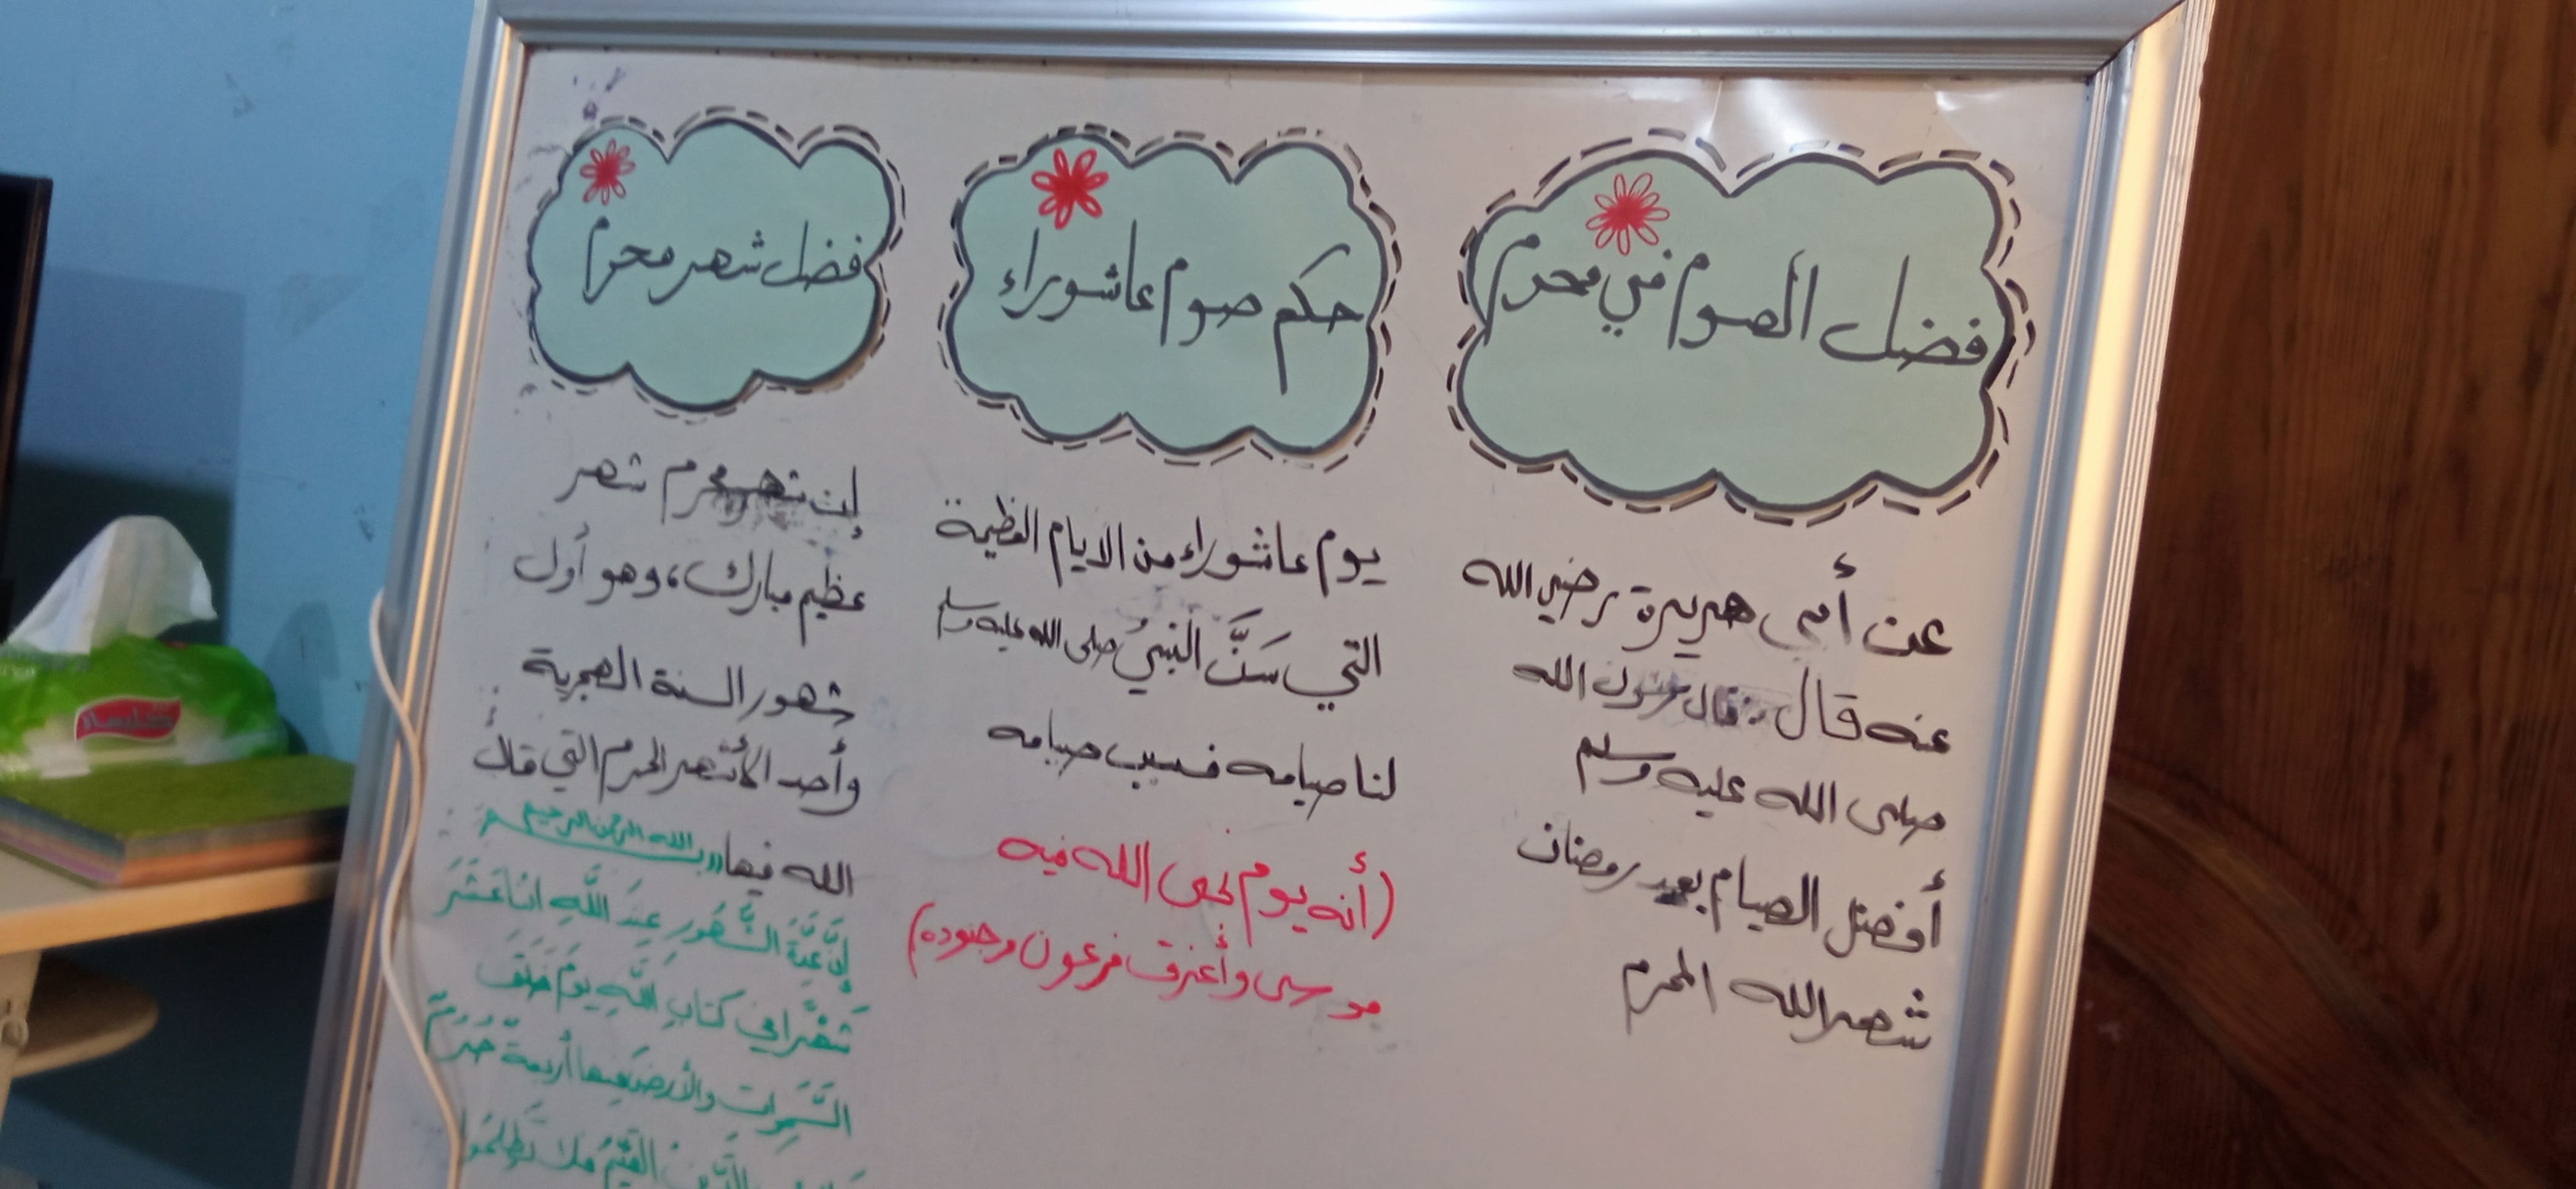 فضل الصوم في محرم
عن أبي هريرة رضي الله
عنه قال: قال رسول الله
صلى الله عليه وسلم
أفضل الصيام بعد رمضان
شهر الله المحرم
حكم صوم عاشوراء
يوم عاشوراء من الايام العظيمة
التي سَنَّ النبيُ صلى الله عليه وسلم
لنا صيامه فسبب صيامه
(أنه يوم نجى الله فيه
موسى وأغرق فرعون وجنوده)
فضل شهر محرم
إن شهر محرم شهر
عظيم مبارك، وهو أول
شهور السنة الهجرية
وأحد الأشهر الحرم التي قال
الله فيها بسم الله الرحمن الرحيم
إنَّ عِدَّةَ الشُّهُورِ عِندَ اللَّهِ اثنا عَشَرَ
شَهْرًا في كتابِ اللَّهِ يَومَ خَلَقَ
السَّمَوات والأرضَ مِنها أربعةٌ حُرُمٌ
الدِّينُ القَيِّمُ فلا تَظلِمُوا